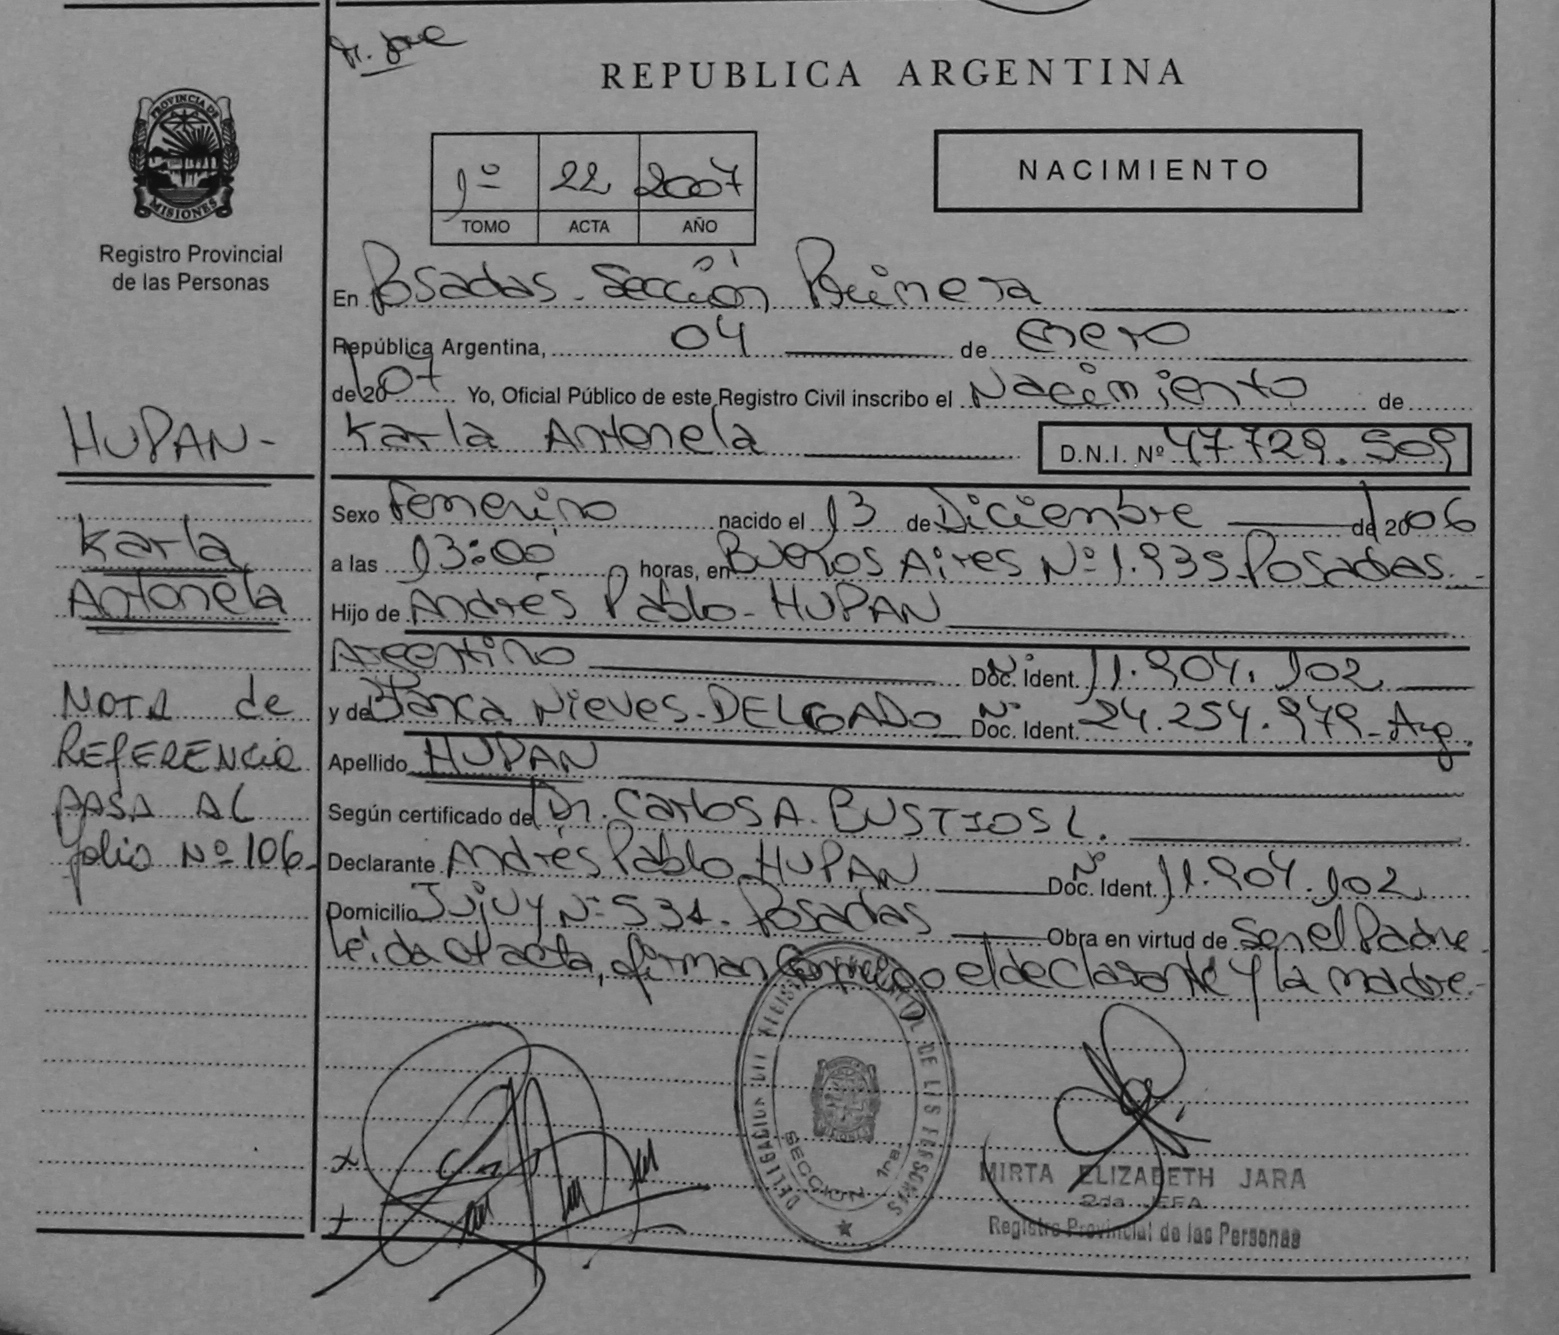 REPUBLICA ARGENTINA
PROVINCIA DE
MISIONES
Registro Provincial
de las Personas
1º 22 2007
TOMO ACTA AÑO
NACIMIENTO
En Posadas - Sección Primera
República Argentina, 04 de enero
de 20 07 Yo, Oficial Público de este Registro Civil inscribo el Nacimiento de
Karla Antonela D.N.I. Nº 47.729.509
Sexo Femenino nacido el 13 de Diciembre de 2006
a las 13:00 horas, en Buenos Aires Nº 1.939 - Posadas.-
Hijo de Andrés Pablo - HUPAN
Argentino Doc. Ident. Nº 11.904.102
y de Blanca Nieves - DELGADO Doc. Ident. Nº 24.254.979 - Arg.
Apellido HUPAN
Según certificado del Dr. Carlos A. BUSTIOS L.
Declarante Andrés Pablo - HUPAN Doc. Ident. Nº 11.904.102
Domicilio Jujuy Nº 531 - Posadas Obra en virtud de Ser el Padre.
Leída el acta, firman conmigo el declarante y la madre.-
HUPAN-
Karla
Antonela
NOTA de
REFERENCIA
PASA AL
folio Nº 106-
DE LAS PERSONAS
SECCION 1ra
MIRTA ELIZABETH JARA
2da. JEFA
Registro Provincial de las Personas